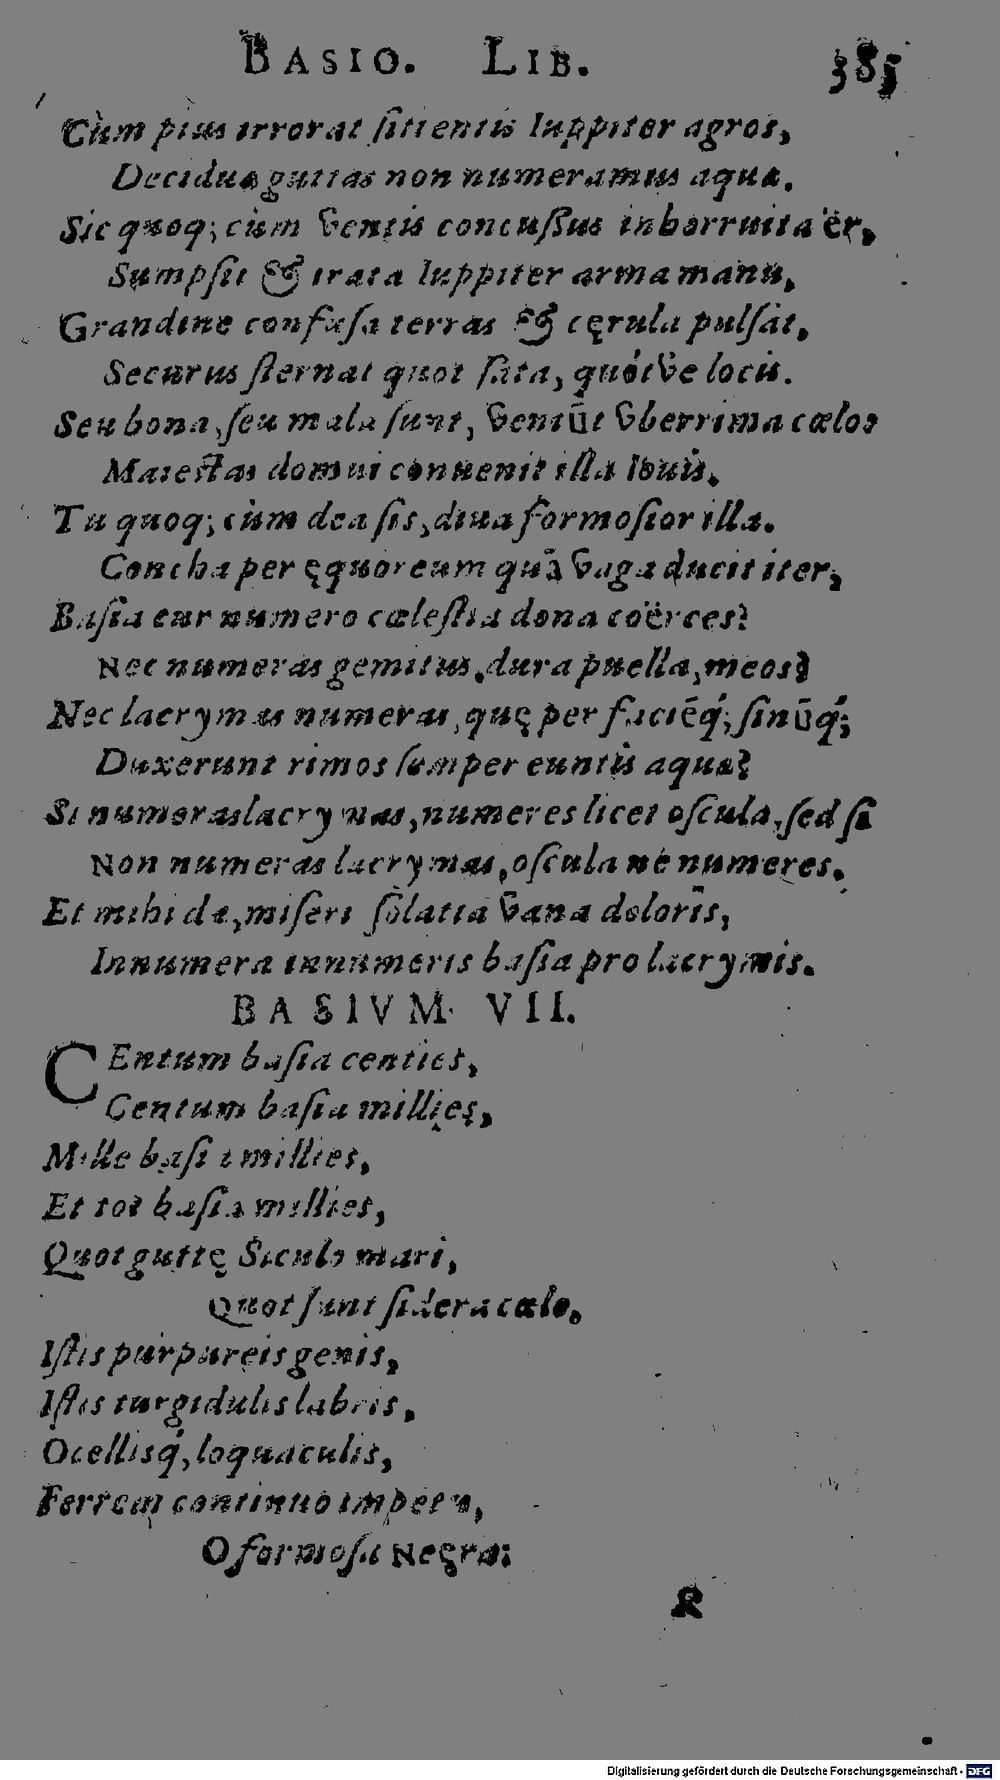 BASIO. LIB. 385
Cùm pius irrorat ſitientis Iuppiter agros,
Deciduas guttas non numeramus aquæ.
Sic quoq; cùm ventis concuſſus inhorruit aër,
Sumpſit & irata Iuppiter arma manu,
Grandine confuſa terras & cęrula pulſat,
Securus ſternat quot ſata, quótve locis.
Seu bona, ſeu mala ſunt, veniūt vberrima cœlo:
Maieſtas domui conuenit illa Iouis.
Tu quoq; cùm dea ſis, diua formoſior illa.
Concha per ęquoreum quā vaga ducit iter,
Baſia cur numero cœleſtia dona coërces?
Nec numeras gemitus, dura puella, meos?
Nec lacrymas numeras, quę per faciēq́; ſinūq́;
Duxerunt riuos ſemper euntis aquæ?
Si numeras lacrymas, numeres licet oſcula, ſed ſi
Non numeras lacrymas, oſcula ne numeres.
Et mihi da, miſeri ſolatia vana doloris,
Innumera innumeris baſia pro lacrymis.
BASIVM VII.
CEntum baſia centies,
Centum baſia millies,
Mille baſia millies,
Et tot baſia millies,
Quot guttę Siculo mari,
Quot ſunt ſidera cælo,
Iſtis purpureis genis,
Iſtis turgidulis labris,
Ocellisq́, loquaculis,
Ferrem continuo impetu,
O formoſa Neęra:
R
Digitalisierung gefördert durch die Deutsche Forschungsgemeinschaft - DFG